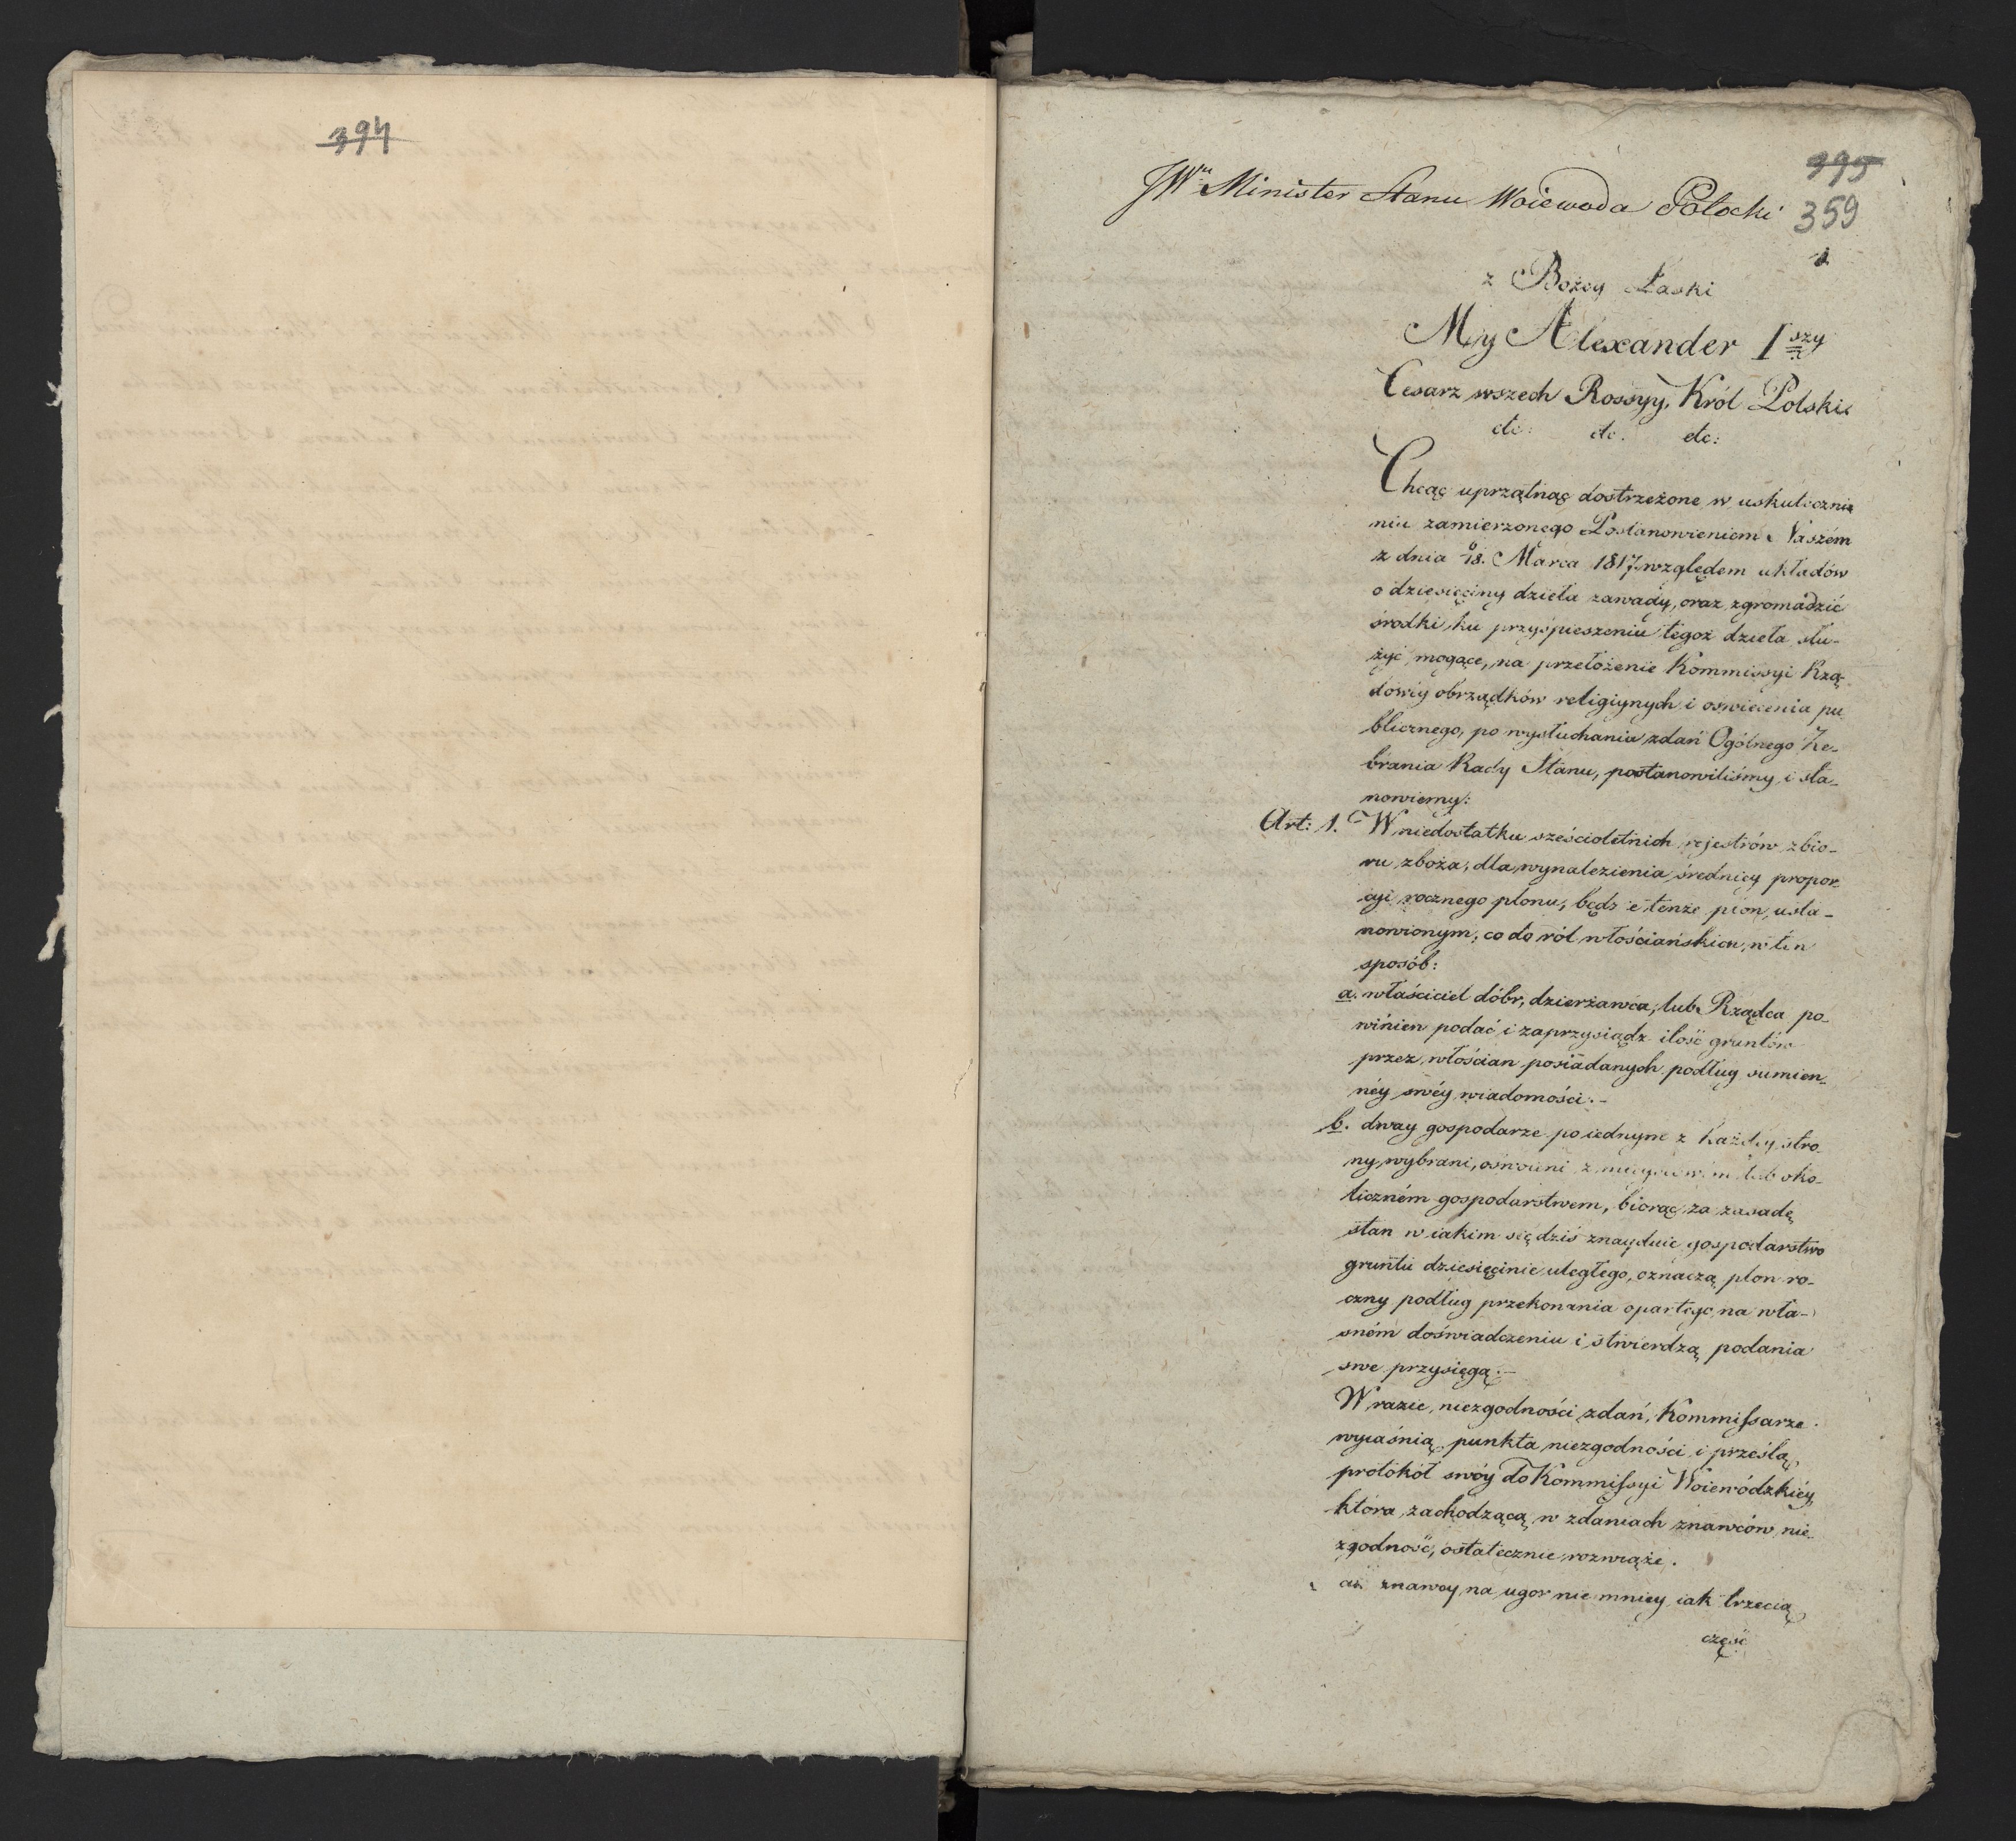 394
395
359
JWny Minister Stanu Woiewoda Potocki
1.
z Bożey Łaski
My Alexander Iszy
Cesarz wszech Rossyy, Król Polski,
etc: etc. etc:
Chcąc uprzątnąć dostrzeżone w uskutecznie
niu zamierzonego Postanowieniem Naszém
z dnia 18. Marca 1817 względem układów
o dziesięciny dzieła zawady, oraz zgromadzić
środki, ku przyspieszeniu tegoż dzieła słu-
żyć mogące, na przełożenie Kommissyi Rzą-
dowéy obrządków religiynych i oświecenia pu
blicznego, po wysłuchaniu zdań Ogólnego Ze-
brania Rady Stanu, postanowiliśmy i sta-
nowiemy:
Art: 1. W niedostatku sześcioletnich rejestrów zbio-
ru zboża, dla wynalezienia średniey propor-
cyi rocznego plonu, będzie tenże plon usta-
nowionym, co do ról włościańskich, w ten
sposób:
a. właściciel dóbr, dzierżawca, lub Rządca po-
winien podać i zaprzysiądz ilość gruntów
przez włościan posiadanych podług sumien-
néy swéy wiadomości.-
b. dway gospodarze po iednym z każdey stro-
ny wybrani, oswoieni z mieyscowém lub oko-
liczném gospodarstwem, biorąc za zasadę
stan w iakim się dziś znayduie gospodarstwo
gruntu dziesięcinie uległego, oznaczą plon ro-
czny podług przekonania opartego na wła-
sném doświadczeniu i stwierdzą podania
swe przysięgą.-
W razie niezgodności zdań, Kommissarze
wyiaśnią punkta niezgodności i prześlą
protokół swóy do Kommissyi Woiewódzkiéy,
która zachodzącą w zdaniach znawców nie-
zgodność, ostatecznie rozwiąże.
znawcy na ugor nie mniey iak trzecią
część